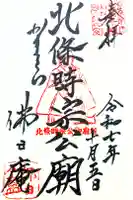 奉拝
北條時宗公廟
北條時宗公廟所
令和七年
十月五日
佛日庵